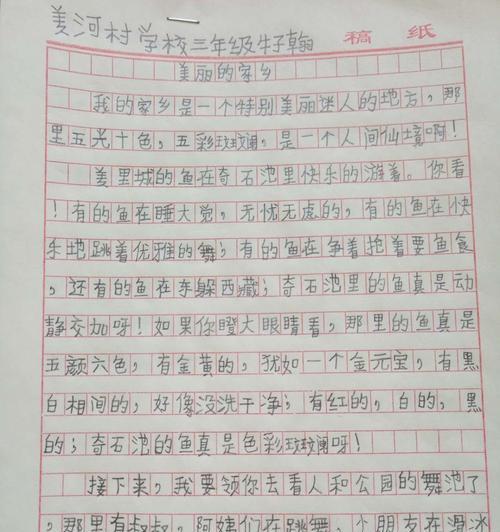 姜河村学校三年级牛子翰 稿纸
美丽的家乡
我的家乡是一个特别美丽迷人的地方，那
里五光十色，五彩斑斓，是一个人间仙境啊！
姜里城的鱼在奇石池里快乐的游着。你看
！有的鱼在睡大觉，无忧无虑的，有的鱼在快
乐地跳着优雅的舞；有的鱼在争着抢着要鱼食
，还有的鱼在东躲西藏；奇石池里的鱼真是动
静交加呀！如果你瞪大眼睛看，那里的鱼真是
五颜六色，有金黄的，犹如一个金元宝，有黑
白相间的，好像没洗干净；有红的，白的，黑
的；奇石池的鱼真是色彩斑斓呀！
接下来，我要领你去看人和公园的舞池了
，那里有叔叔，阿姨们在跳舞，个朋友在滑冰